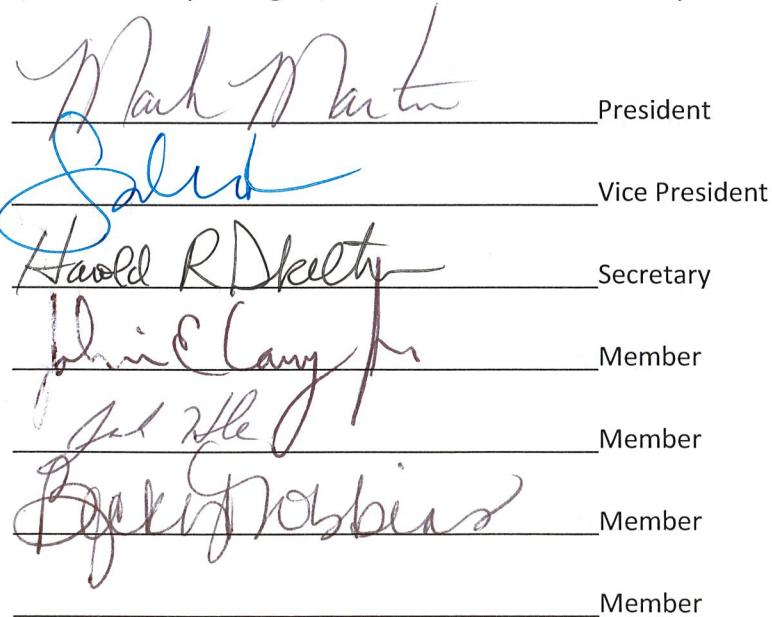 Mark Martin President
Vice President
Harold R Skelton Secretary
John E Cary Jr Member
Member
Becky Robbins Member
Member